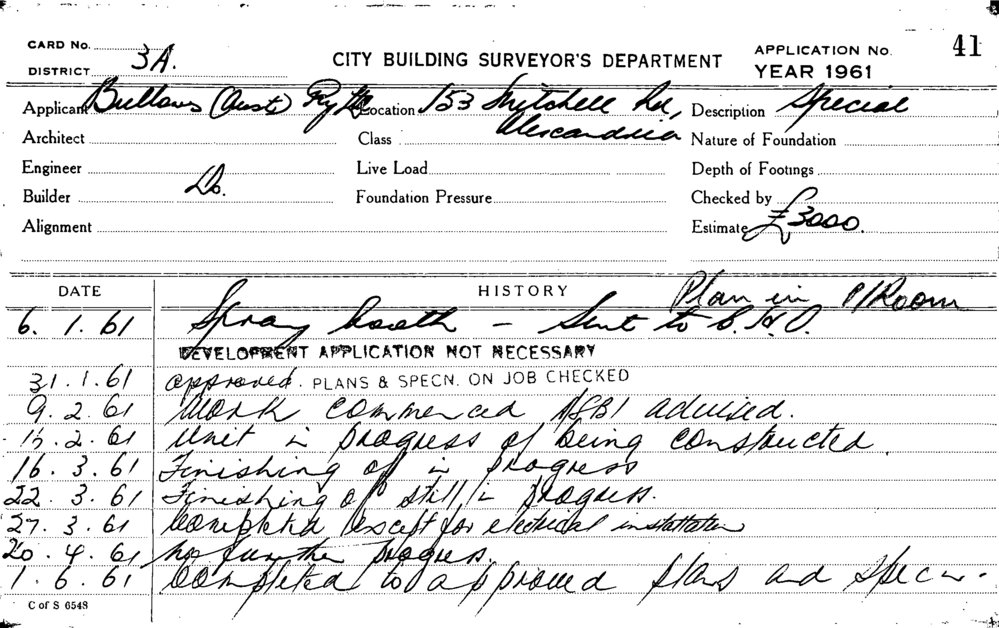 CARD No. 3A.
DISTRICT
CITY BUILDING SURVEYOR'S DEPARTMENT
APPLICATION No. 41
YEAR 1961
Applicant Bullows (Aust) Pty Ltd Location 153 Mitchell Rd, Description Special
Architect Class Alexandria Nature of Foundation
Engineer Live Load Depth of Footings
Builder Do. Foundation Pressure Checked by
Alignment Estimate £3000.
DATE HISTORY Plan in P/Room
6. 1. 61 Spray booth - Sent to C.H.O.
DEVELOPMENT APPLICATION NOT NECESSARY
31. 1. 61 approved. PLANS & SPECN. ON JOB CHECKED
9. 2. 61 Work commenced advised.
2. 61 Unit in progress of being constructed.
16. 3. 61 Finishing of in progress
22. 3. 61 Finishing of still in progress.
27. 3. 61 Completed except for electrical installation
20. 4. 61 No further progress.
1. 6. 61 Completed to approved plans and specn.
C of S 6548